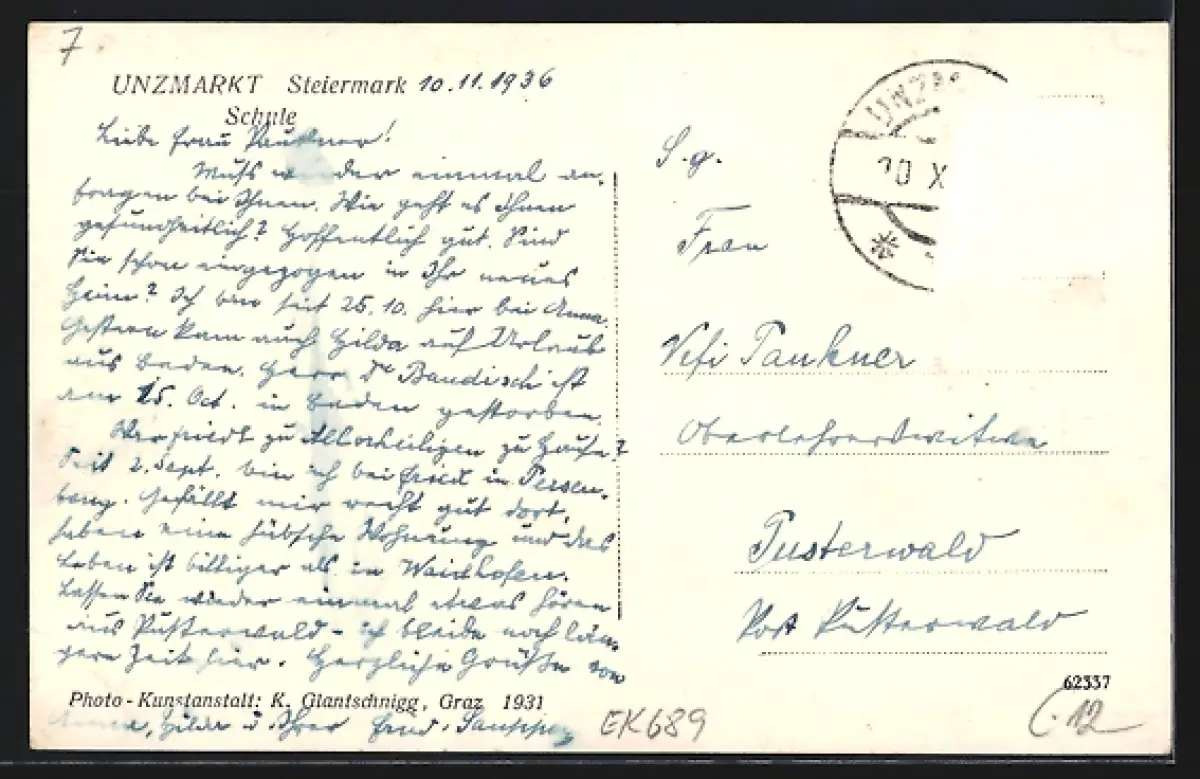 7.
UNZMARKT Steiermark 10.11.1936
Schule
Liebe Frau Paukner!
Muß wieder einmal an-
fragen bei Ihnen. Wie geht es Ihnen
gesundheitlich? Hoffentlich gut. Sind
Sie schon eingezogen in Ihr neues
Heim? Ich bin seit 25.10. hier bei Anna.
Gestern kam auch Hilda auf Urlaub
aus Baden. Herr Dr Baudisch ist
am 15. Oct. in Baden gestorben.
zu Allerheiligen zu Hause?
Seit 2. Sept. bin ich bei Fried in Persen-
beug. Gefällt mir recht gut dort,
haben eine hübsche Wohnung und das
Leben ist billiger als in Waidhofen.
Lassen Sie wieder einmal etwas hören
aus Pusterwald – ich bleibe noch län-
gere Zeit hier. Herzliche Grüße von
Anna, Hilda u. Ihrer
Photo-Kunstanstalt: K. Glantschnigg, Graz 1931
UNZM
10 X
S. g.
Frau
Vefi Paukner
Oberlehrerswitwe
Pusterwald
Post Pusterwald
62337
EK689
12